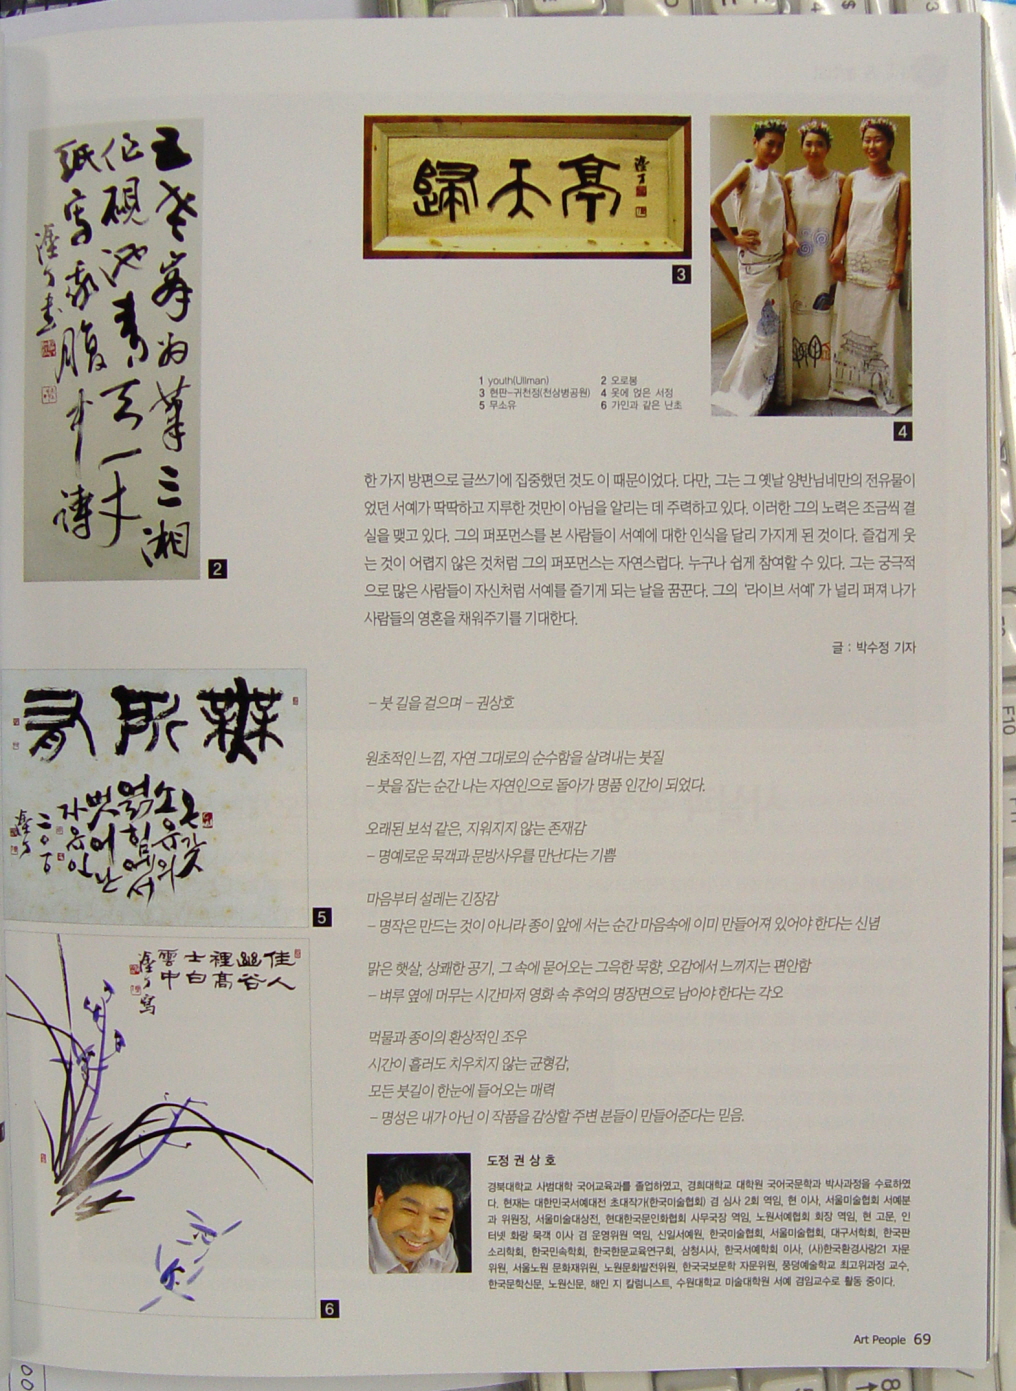 五老峯為筆三湘
作硯池青天一丈
紙寫我腹中詩
塗丁書
2
歸天亭
塗丁
3
4
1 youth(Ullman)
2 오로봉
3 현판-귀천정(천상병공원)
4 옷에 얹은 서정
5 무소유
6 가인과 같은 난초
한 가지 방편으로 글쓰기에 집중했던 것도 이 때문이었다. 다만, 그는 그 옛날 양반님네만의 전유물이
었던 서예가 딱딱하고 지루한 것만이 아님을 알리는 데 주력하고 있다. 이러한 그의 노력은 조금씩 결
실을 맺고 있다. 그의 퍼포먼스를 본 사람들이 서예에 대한 인식을 달리 가지게 된 것이다. 즐겁게 웃
는 것이 어렵지 않은 것처럼 그의 퍼포먼스는 자연스럽다. 누구나 쉽게 참여할 수 있다. 그는 궁극적
으로 많은 사람들이 자신처럼 서예를 즐기게 되는 날을 꿈꾼다. 그의 ‘라이브 서예’가 널리 퍼져 나가
사람들의 영혼을 채워주기를 기대한다.
글 : 박수정 기자
無所有
5
佳人
幽谷
裡高
士白
雲中
塗丁寫
6
– 붓 길을 걸으며 – 권상호
원초적인 느낌, 자연 그대로의 순수함을 살려내는 붓질
– 붓을 잡는 순간 나는 자연인으로 돌아가 명품 인간이 되었다.
오래된 보석 같은, 지워지지 않는 존재감
– 명예로운 묵객과 문방사우를 만난다는 기쁨
마음부터 설레는 긴장감
– 명작은 만드는 것이 아니라 종이 앞에 서는 순간 마음속에 이미 만들어져 있어야 한다는 신념
맑은 햇살, 상쾌한 공기, 그 속에 묻어오는 그윽한 묵향, 오감에서 느껴지는 편안함
– 벼루 옆에 머무는 시간마저 영화 속 추억의 명장면으로 남아야 한다는 각오
먹물과 종이의 환상적인 조우
시간이 흘러도 치우치지 않는 균형감,
모든 붓길이 한눈에 들어오는 매력
– 명성은 내가 아닌 이 작품을 감상할 주변 분들이 만들어준다는 믿음.
도정 권상호
경북대학교 사범대학 국어교육과를 졸업하였고, 경희대학교 대학원 국어국문학과 박사과정을 수료하였
다. 현재는 대한민국서예대전 초대작가(한국미술협회) 겸 심사 2회 역임, 현 이사, 서울미술협회 서예분
과 위원장, 서울미술대상전, 현대한국문인화협회 사무국장 역임, 노원서예협회 회장 역임, 현 고문, 인
터넷 화랑 묵객 이사 겸 운영위원 역임, 신일서예원, 한국미술협회, 서울미술협회, 대구서학회, 한국판
소리학회, 한국민속학회, 한국한문교육연구회, 삼청시사, 한국서예학회 이사, (사)한국환경사랑21 자문
위원, 서울노원 문화재위원, 노원문화발전위원, 한국국보문학 자문위원, 풍덩예술학교 최고위과정 교수,
한국문학신문, 노원신문, 해인 지 칼럼니스트, 수원대학교 미술대학원 서예 겸임교수로 활동 중이다.
Art People 69
F10